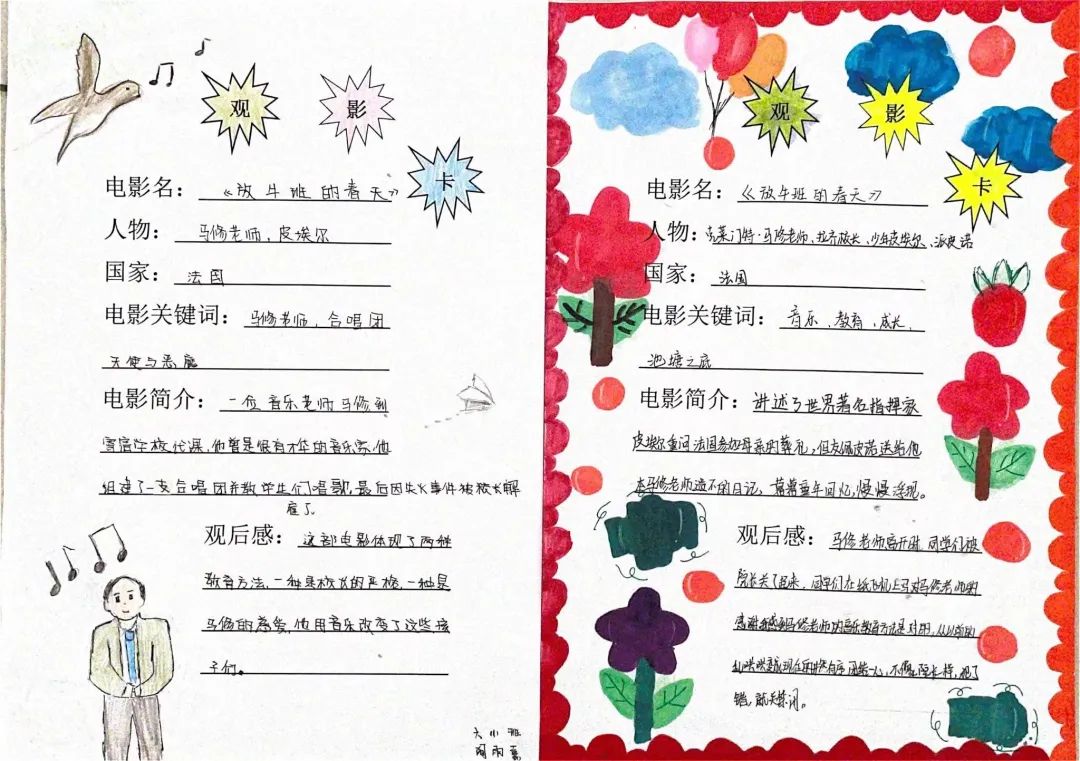 观影卡
电影名：《放牛班的春天》
人物：马修老师，皮埃尔
国家：法国
电影关键词：马修老师，合唱团
天使与恶魔
电影简介：一位音乐老师马修到
学校代课，他曾是很有才华的音乐家，他
组建了一支合唱团并教学生们唱歌，最后因失火事件被校长解
雇了。
观后感：这部电影体现了两种
教育方法，一种是校长的严格，一种是
马修的，他用音乐改变了这些孩
子们。
大小班
雨
观影卡
电影名：《放牛班的春天》
人物：克莱门特·马修老师、拉齐校长、少年皮埃尔、派皮诺
国家：法国
电影关键词：音乐、教育、成长、
池塘之底
电影简介：讲述了世界著名指挥家
皮埃尔重回法国参加母亲的葬礼，但友佩皮诺送给他
本马修老师遗下的日记，童年回忆，慢慢浮现。
观后感：马修老师离开时，同学们被
院长关了起来，同学们在纸飞机上写对马修老师的
马修老师的音乐教育方法是对的，从以前的
到现在，不像院长一样，犯了
错，就关禁闭。